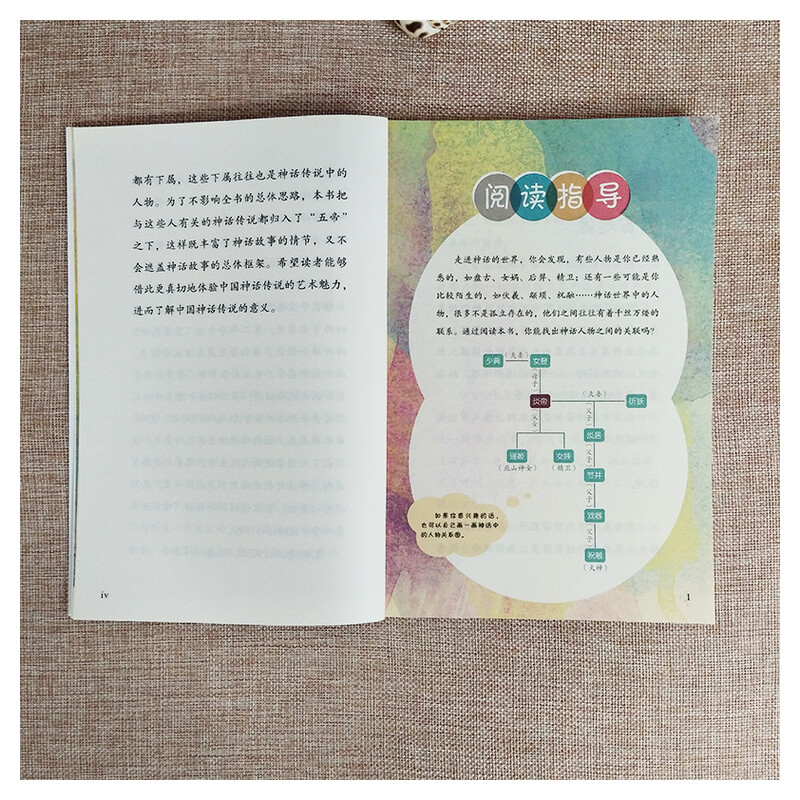 都有下属，这些下属往往也是神话传说中的
人物。为了不影响全书的总体思路，本书把
与这些人有关的神话传说都归入了“五帝”
之下，这样既丰富了神话故事的情节，又不
会遮盖神话故事的总体框架。希望读者能够
借此更真切地体验中国神话传说的艺术魅力，
进而了解中国神话传说的意义。
iv
阅读指导
走进神话的世界，你会发现，有些人物是你已经熟
悉的，如盘古、女娲、后羿、精卫；还有一些可能是你
比较陌生的，如伏羲、颛顼、祝融……神话世界中的人
物，很多不是孤立存在的，他们之间往往有着千丝万缕的
联系。通过阅读本书，你能找出神话人物之间的关联吗？
少典（夫妻）女登
（母子）
炎帝（夫妻）听訞
（父女）
（父子）
炎居
瑶姬 女娃
（巫山神女）（精卫）
（父子）
节并
（父子）
戏器
（父子）
祝融
（火神）
如果你感兴趣的话，
也可以自己画一画神话中
的人物关系图。
1